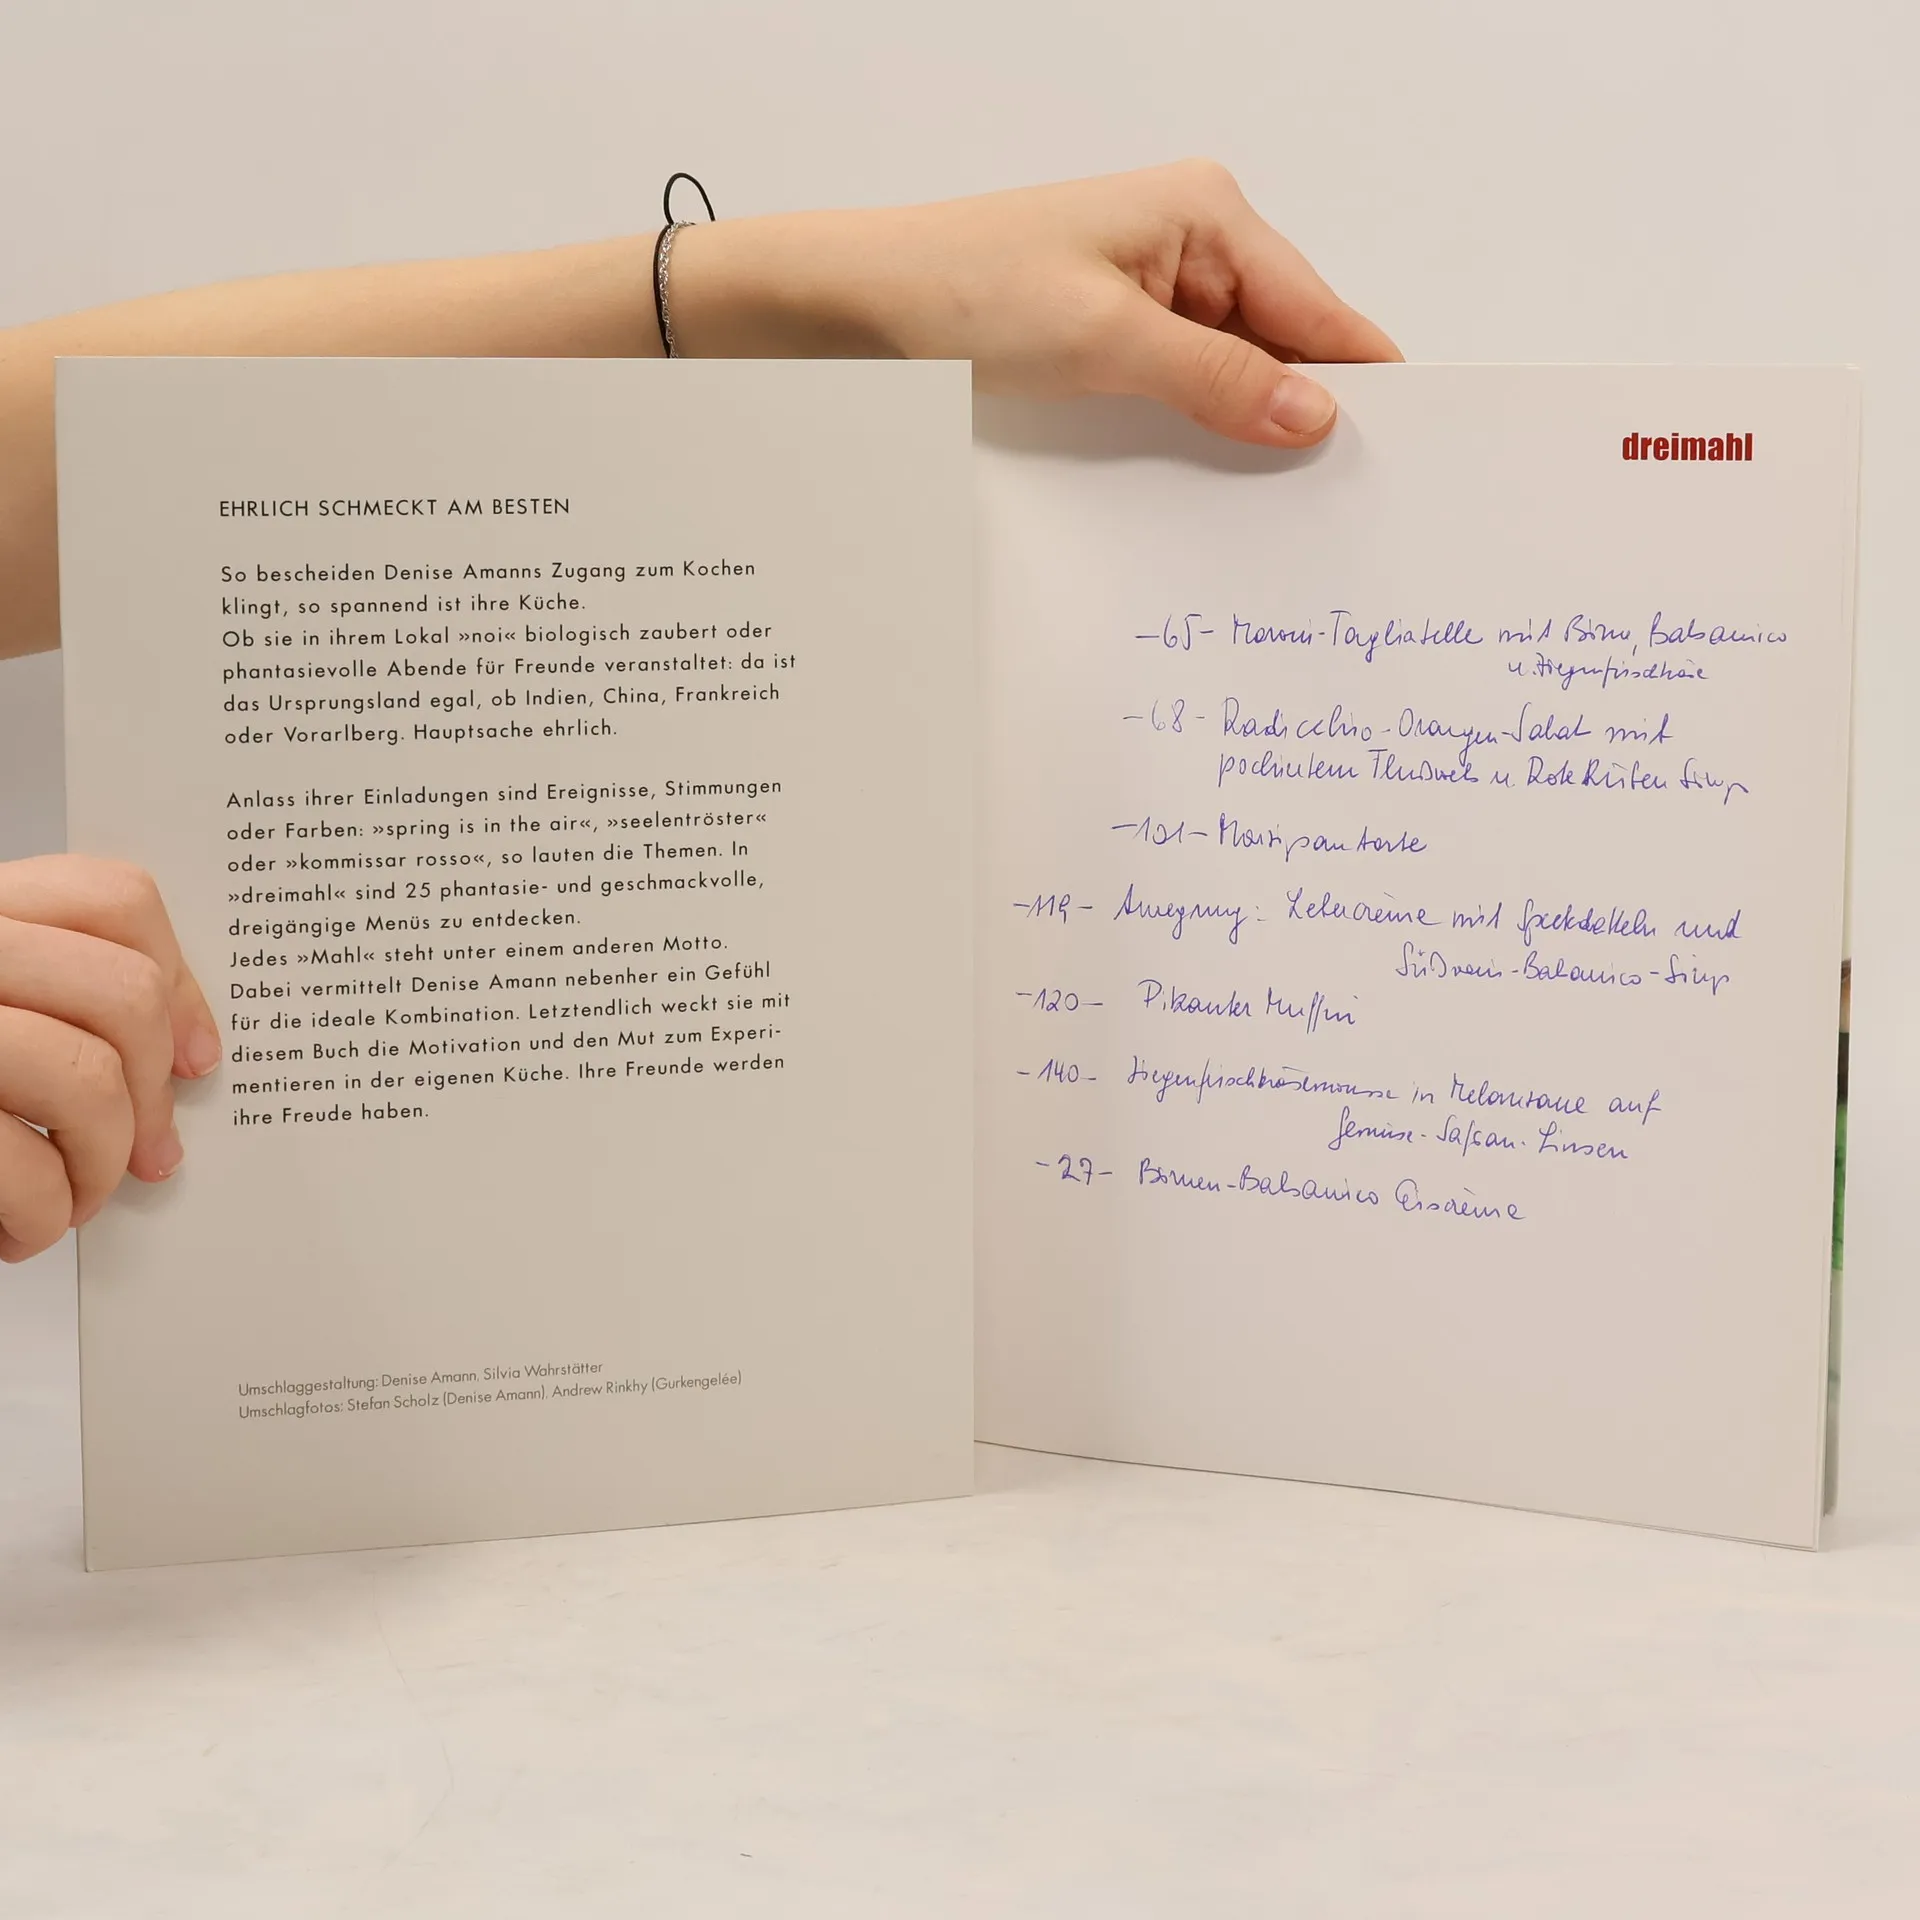 EHRLICH SCHMECKT AM BESTEN
So bescheiden Denise Amanns Zugang zum Kochen
klingt, so spannend ist ihre Küche.
Ob sie in ihrem Lokal »noi« biologisch zaubert oder
phantasievolle Abende für Freunde veranstaltet: da ist
das Ursprungsland egal, ob Indien, China, Frankreich
oder Vorarlberg. Hauptsache ehrlich.
Anlass ihrer Einladungen sind Ereignisse, Stimmungen
oder Farben: »spring is in the air«, »seelentröster«
oder »kommissar rosso«, so lauten die Themen. In
»dreimahl« sind 25 phantasie- und geschmackvolle,
dreigängige Menüs zu entdecken.
Jedes »Mahl« steht unter einem anderen Motto.
Dabei vermittelt Denise Amann nebenher ein Gefühl
für die ideale Kombination. Letztendlich weckt sie mit
diesem Buch die Motivation und den Mut zum Experi-
mentieren in der eigenen Küche. Ihre Freunde werden
ihre Freude haben.
Umschlaggestaltung: Denise Amann, Silvia Wahrstätter
Umschlagfotos: Stefan Scholz (Denise Amann), Andrew Rinkhy (Gurkengelée)
dreimahl
-65- Maroni-Tagliatelle mit Birne, Balsamico
u. Ziegenfrischkäse
-68- Radicchio-Orangen-Salat mit
pochiertem Flußwels u. Rote Rüben Sirup
-101- Marzipantorte
-119- Anregung: Lebercrème mit Speckdatteln und
Süßwein-Balsamico-Sirup
-120- Pikanter Muffin
-140- Ziegenfrischkäsemousse in Melanzane auf
Gemüse-Safran-Linsen
-27- Birnen-Balsamico Eiscrème